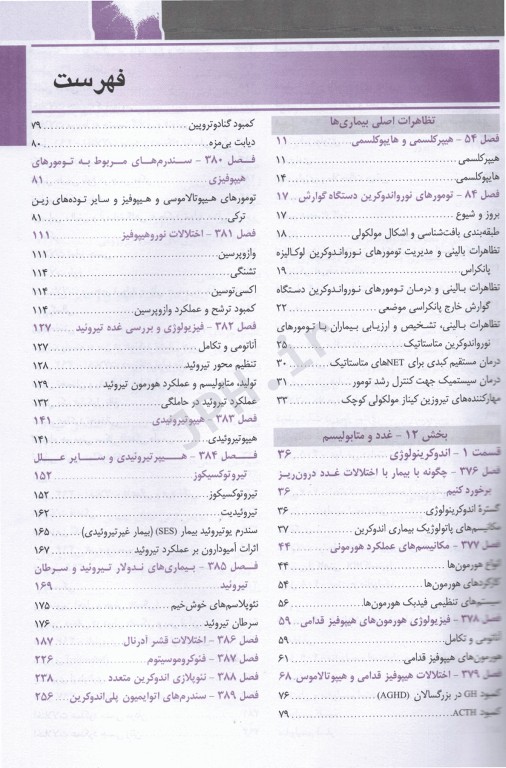 فهرست
تظاهرات اصلی بیماری‌ها
فصل ۵۴ - هیپرکلسمی و هایپوکلسمی ۱۱
هیپرکلسمی ۱۱
هایپوکلسمی ۱۴
فصل ۸۴ - تومورهای نورواندوکرین دستگاه گوارش ۱۷
بروز و شیوع ۱۷
طبقه‌بندی بافت‌شناسی و اشکال مولکولی ۱۸
تظاهرات بالینی و مدیریت تومورهای نورواندوکرین لوکالیزه
پانکراس ۱۹
تظاهرات بالینی و درمان تومورهای نورواندوکرین دستگاه
گوارش خارج پانکراسی موضعی ۲۲
تظاهرات بالینی، تشخیص و ارزیابی بیماران با تومورهای
نورواندوکرین متاستاتیک ۲۵
درمان مستقیم کبدی برای NETهای متاستاتیک ۳۰
درمان سیستمیک جهت کنترل رشد تومور ۳۱
مهارکننده‌های تیروزین کیناز مولکولی کوچک ۳۳
بخش ۱۲ - غدد و متابولیسم
قسمت ۱ - اندوکرینولوژی ۳۶
فصل ۳۷۶ - چگونه با بیمار با اختلالات غدد درون‌ریز
برخورد کنیم ۳۶
گسترهٔ اندوکرینولوژی ۳۶
مکانیسم‌های پاتولوژیک بیماری اندوکرین ۳۷
فصل ۳۷۷ - مکانیسم‌های عملکرد هورمونی ۴۴
انواع هورمون‌ها ۴۴
کارکردهای هورمون‌ها ۵۴
سیستم‌های تنظیمی فیدبک هورمون‌ها ۵۶
فصل ۳۷۸ - فیزیولوژی هورمون‌های هیپوفیز قدامی ۵۹
آناتومی و تکامل ۵۹
هورمون‌های هیپوفیز قدامی ۶۱
فصل ۳۷۹ - اختلالات هیپوفیز قدامی و هیپوتالاموس ۶۸
کمبود GH در بزرگسالان (AGHD) ۷۶
کمبود ACTH ۷۹
کمبود گنادوتروپین ۷۹
دیابت بی‌مزه ۸۰
فصل ۳۸۰ - سندرم‌های مربوط به تومورهای
هیپوفیزی ۸۱
تومورهای هیپوتالاموسی و هیپوفیز و سایر توده‌های زین
ترکی ۸۱
فصل ۳۸۱ - اختلالات نوروهیپوفیز ۱۱۱
وازوپرسین ۱۱۱
تشنگی ۱۱۴
اکسی‌توسین ۱۱۴
کمبود ترشح و عملکرد وازوپرسین ۱۱۴
فصل ۳۸۲ - فیزیولوژی و بررسی غده تیروئید ۱۲۷
آناتومی و تکامل ۱۲۷
تنظیم محور تیروئید ۱۲۸
تولید، متابولیسم و عملکرد هورمون تیروئید ۱۲۹
عملکرد تیروئید در حاملگی ۱۳۲
فصل ۳۸۳ - هیپوتیروئیدی ۱۴۱
هیپوتیروئیدی ۱۴۱
فصل ۳۸۴ - هیپرتیروئیدی و سایر علل
تیروتوکسیکوز ۱۵۲
تیروتوکسیکوز ۱۵۲
تیروئیدیت ۱۶۲
سندرم یوتیروئید بیمار (SES) (بیمار غیرتیروئیدی) ۱۶۵
اثرات آمیودارون بر عملکرد تیروئید ۱۶۷
فصل ۳۸۵ - بیماری‌های ندولار تیروئید و سرطان
تیروئید ۱۶۹
نئوپلاسم‌های خوش‌خیم ۱۷۵
سرطان تیروئید ۱۷۶
فصل ۳۸۶ - اختلالات قشر آدرنال ۱۸۷
فصل ۳۸۷ - فئوکروموسیتوم ۲۲۶
فصل ۳۸۸ - نئوپلازی اندوکرین متعدد ۲۳۸
فصل ۳۸۹ - سندرم‌های اتوایمیون پلی‌اندوکرین ۲۵۶